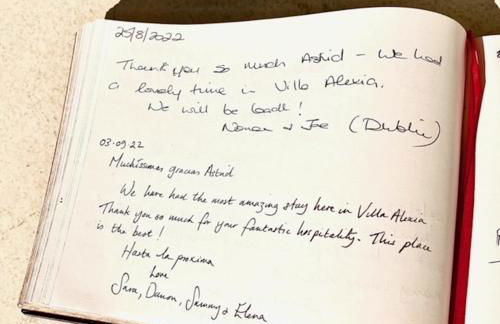 25/8/2022
Thank you so much Astrid - We had
a lovely time in Villa Alexia.
We will be back!
& Joe (Dublin)
03.09.22
Muchissimas gracias Astrid
We have had the most amazing stay here in Villa Alexia
Thank you so much for your fantastic hospitality. This place
is the best!
Hasta la proxima
Love
Sara, Damon, Sammy & Elena